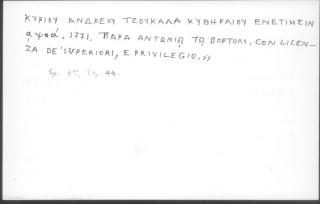 ΚΥΡΙΟΥ ΑΝΔΡΕΟΥ ΤΖΟΥΚΑΛΑ ΚΥΘΗΡΑΙΟΥ ΕΝΕΤΙΗΣΙΝ
αψοά, 1771, ΠΑΡΑ ΑΝΤΩΝΙῼ Τῼ ΒΟΡΤΟΛΙ, CON LICEN-
ZA DE'SUPERIORI, E PRIVILEGIO.»
44.